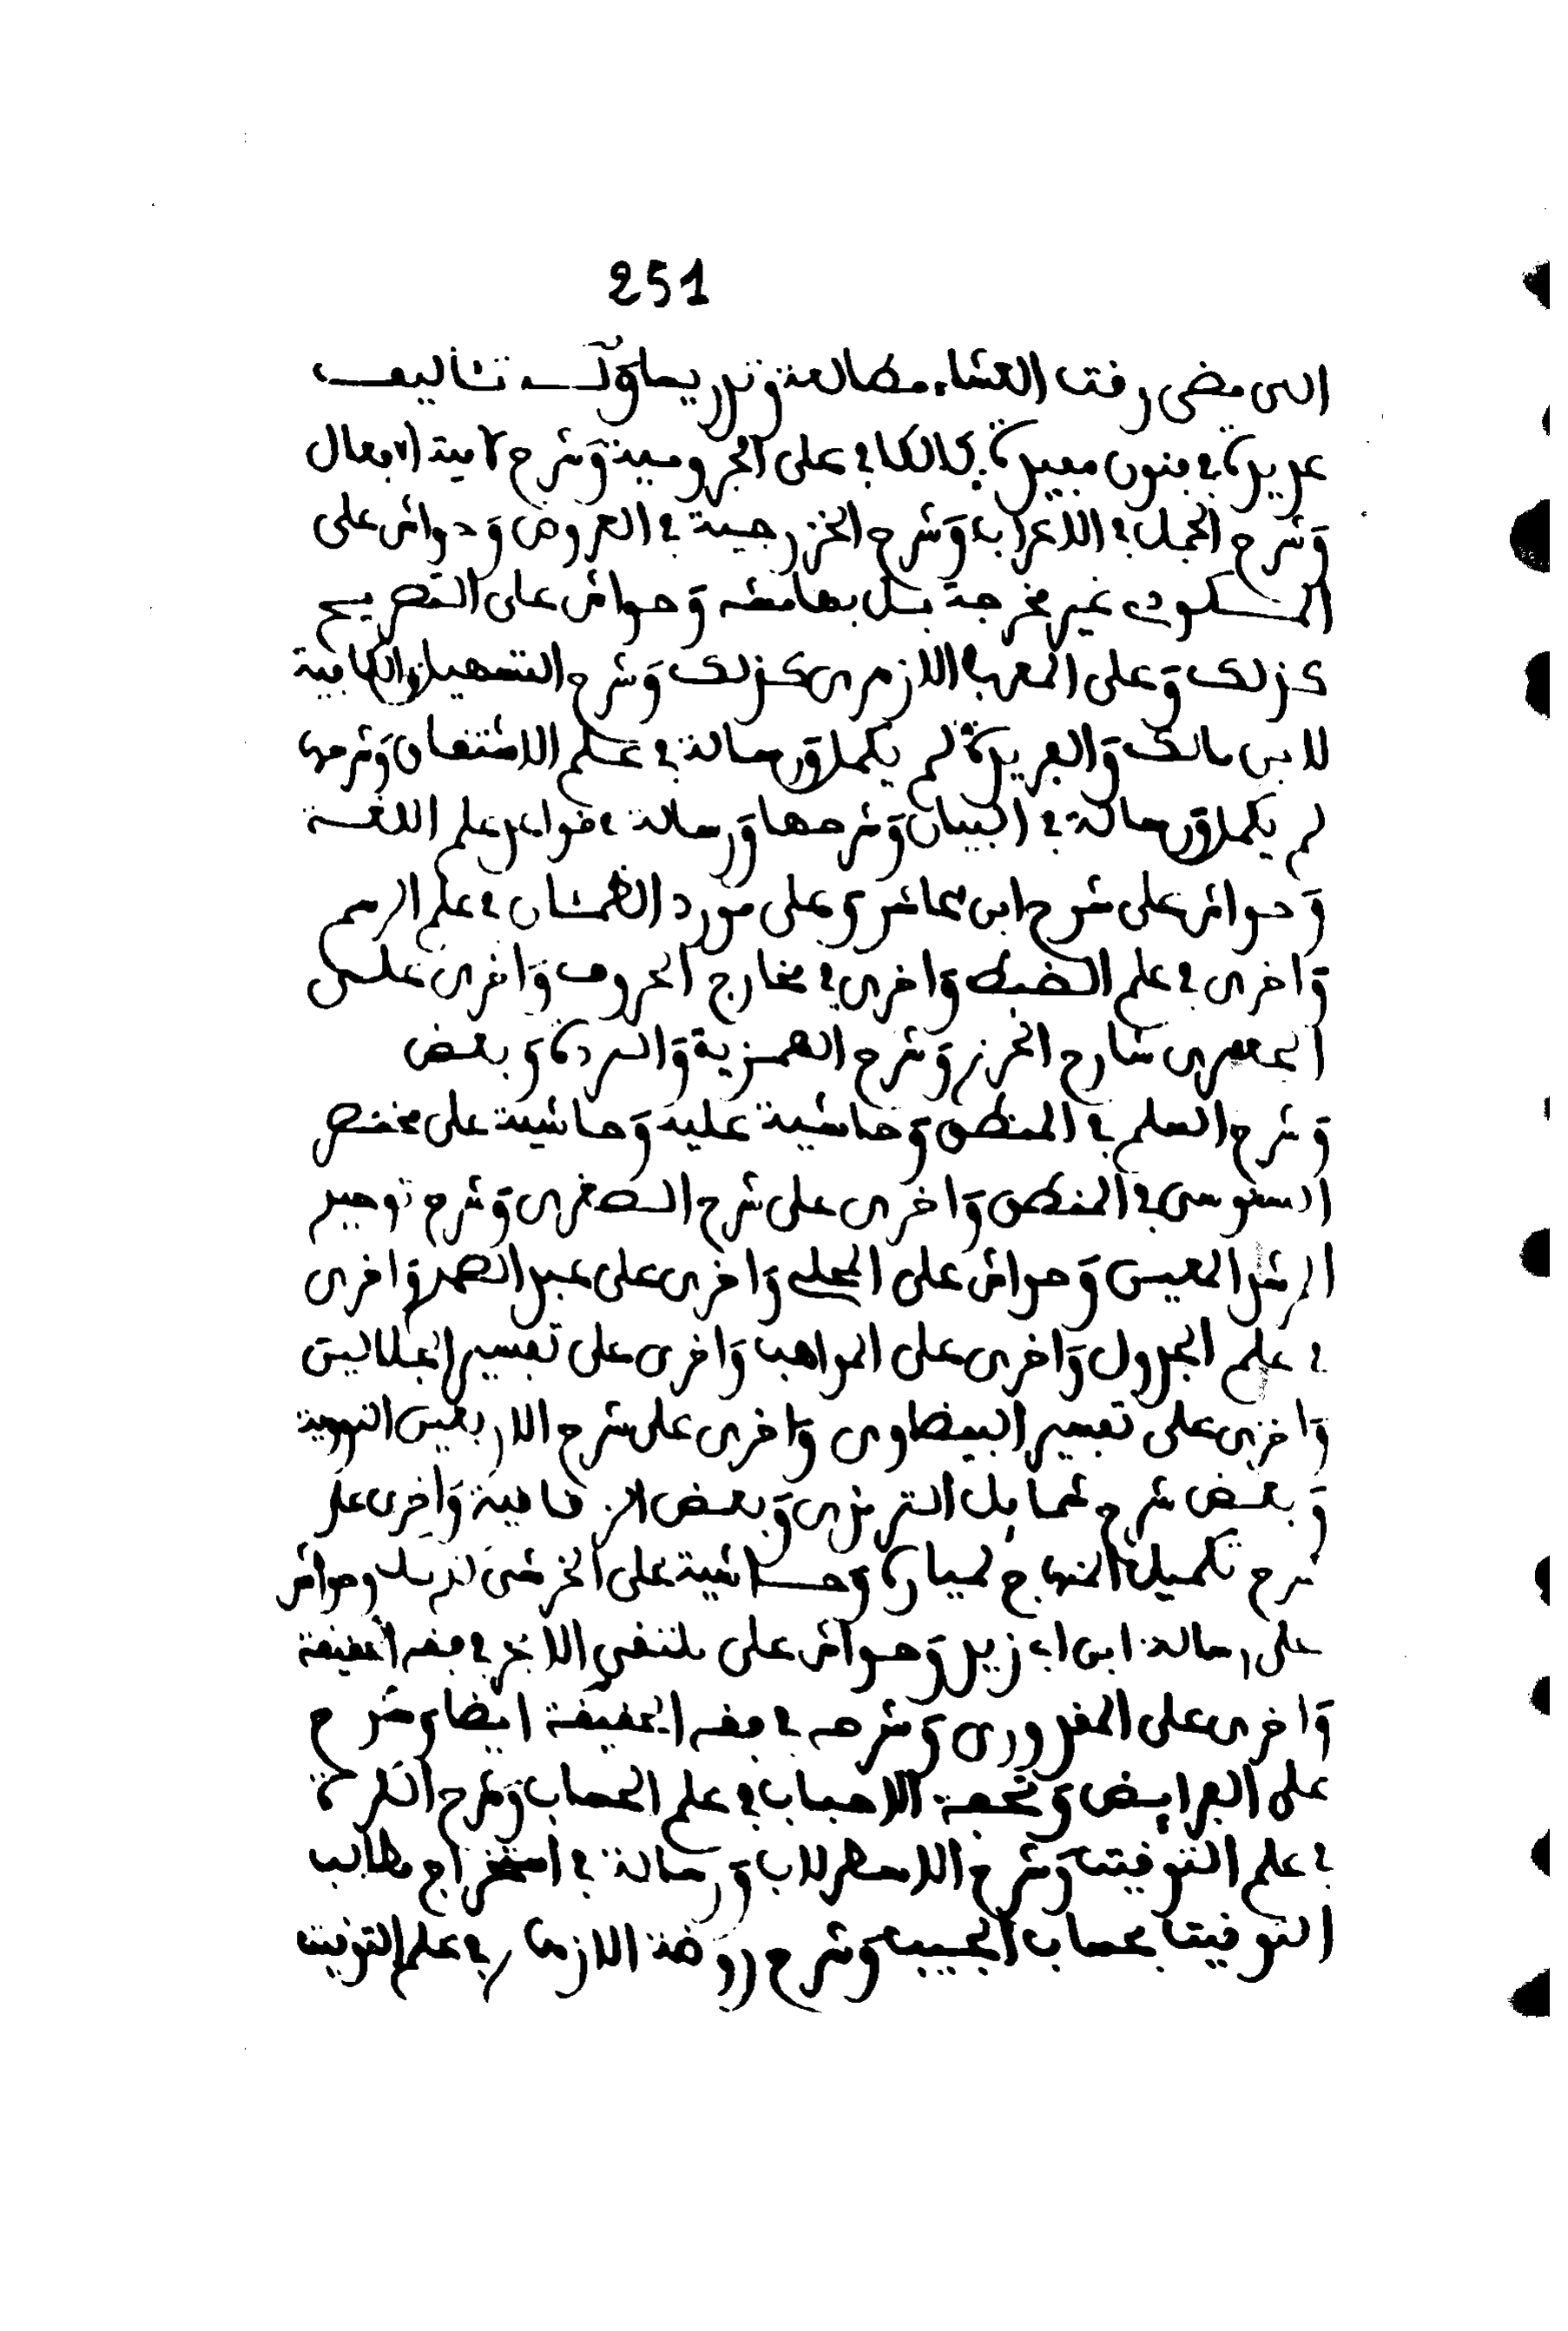 251
الى مضي وقت العشاء مطالعة وتدريسا وله تئاليف
عديدة في فنون مفيدة كالكافي على الجرومية وشرح لامية الافعال
وشرح الجمل في الاعراب وشرح الخزرجية في العروض وحواش على
المكودي غير مخرجة بل بهامشه وحواش على التصريح
كذلك وعلى المعرب الازهري كذلك وشرح التسهيل والكافية
لابن مالك والفريدة لم يكمل ورسالة في علم الاشتقاق وشرحها
لم يكمل ورسالة في البيان وشرحها ورسالة في قواعد علم اللغة
وحواش على شرح ابن عاشر وعلى مورد الظمئان في علم الرسم
واخرى في علم الضبط واخرى في مخارج الحروف واخرى على
الجعبري شارح الحرز وشرح الهمزية والبردة وبعض
وشرح السلم في المنطق وحاشية عليه وحاشية على مختصر
السنوسي في المنطق واخرى على شرح الصغرى وشرح توحيد
المرشد المعين وحواش على المحلي واخرى على عبد الصمد واخرى
في علم الجدول واخرى على المواهب واخرى على تفسير الجلالين
واخرى على تفسير البيضاوي واخرى على شرح الاربعين النووية
وبعض شرح شمايل الترمذي وبعض الزقاقية واخرى على
شرح تكميل المنهاج لميارة وحاشية على الخرشي لم يكمل وحواش
على رسالة ابن ابي زيد وحواش على ملتقى الابحر في فقه الحنيفة
واخرى على القدوري وشرحه في فقه الحنيفة ايضا وشرح
على الفرايض وتحفة الاحباب في علم الحساب وشرح
في علم التوقيت وشرح الاسطرلاب ورسالة في استخراج مطالب
التوقيت بحساب الجيب وشرح روضة الازهار في علم التوقيت